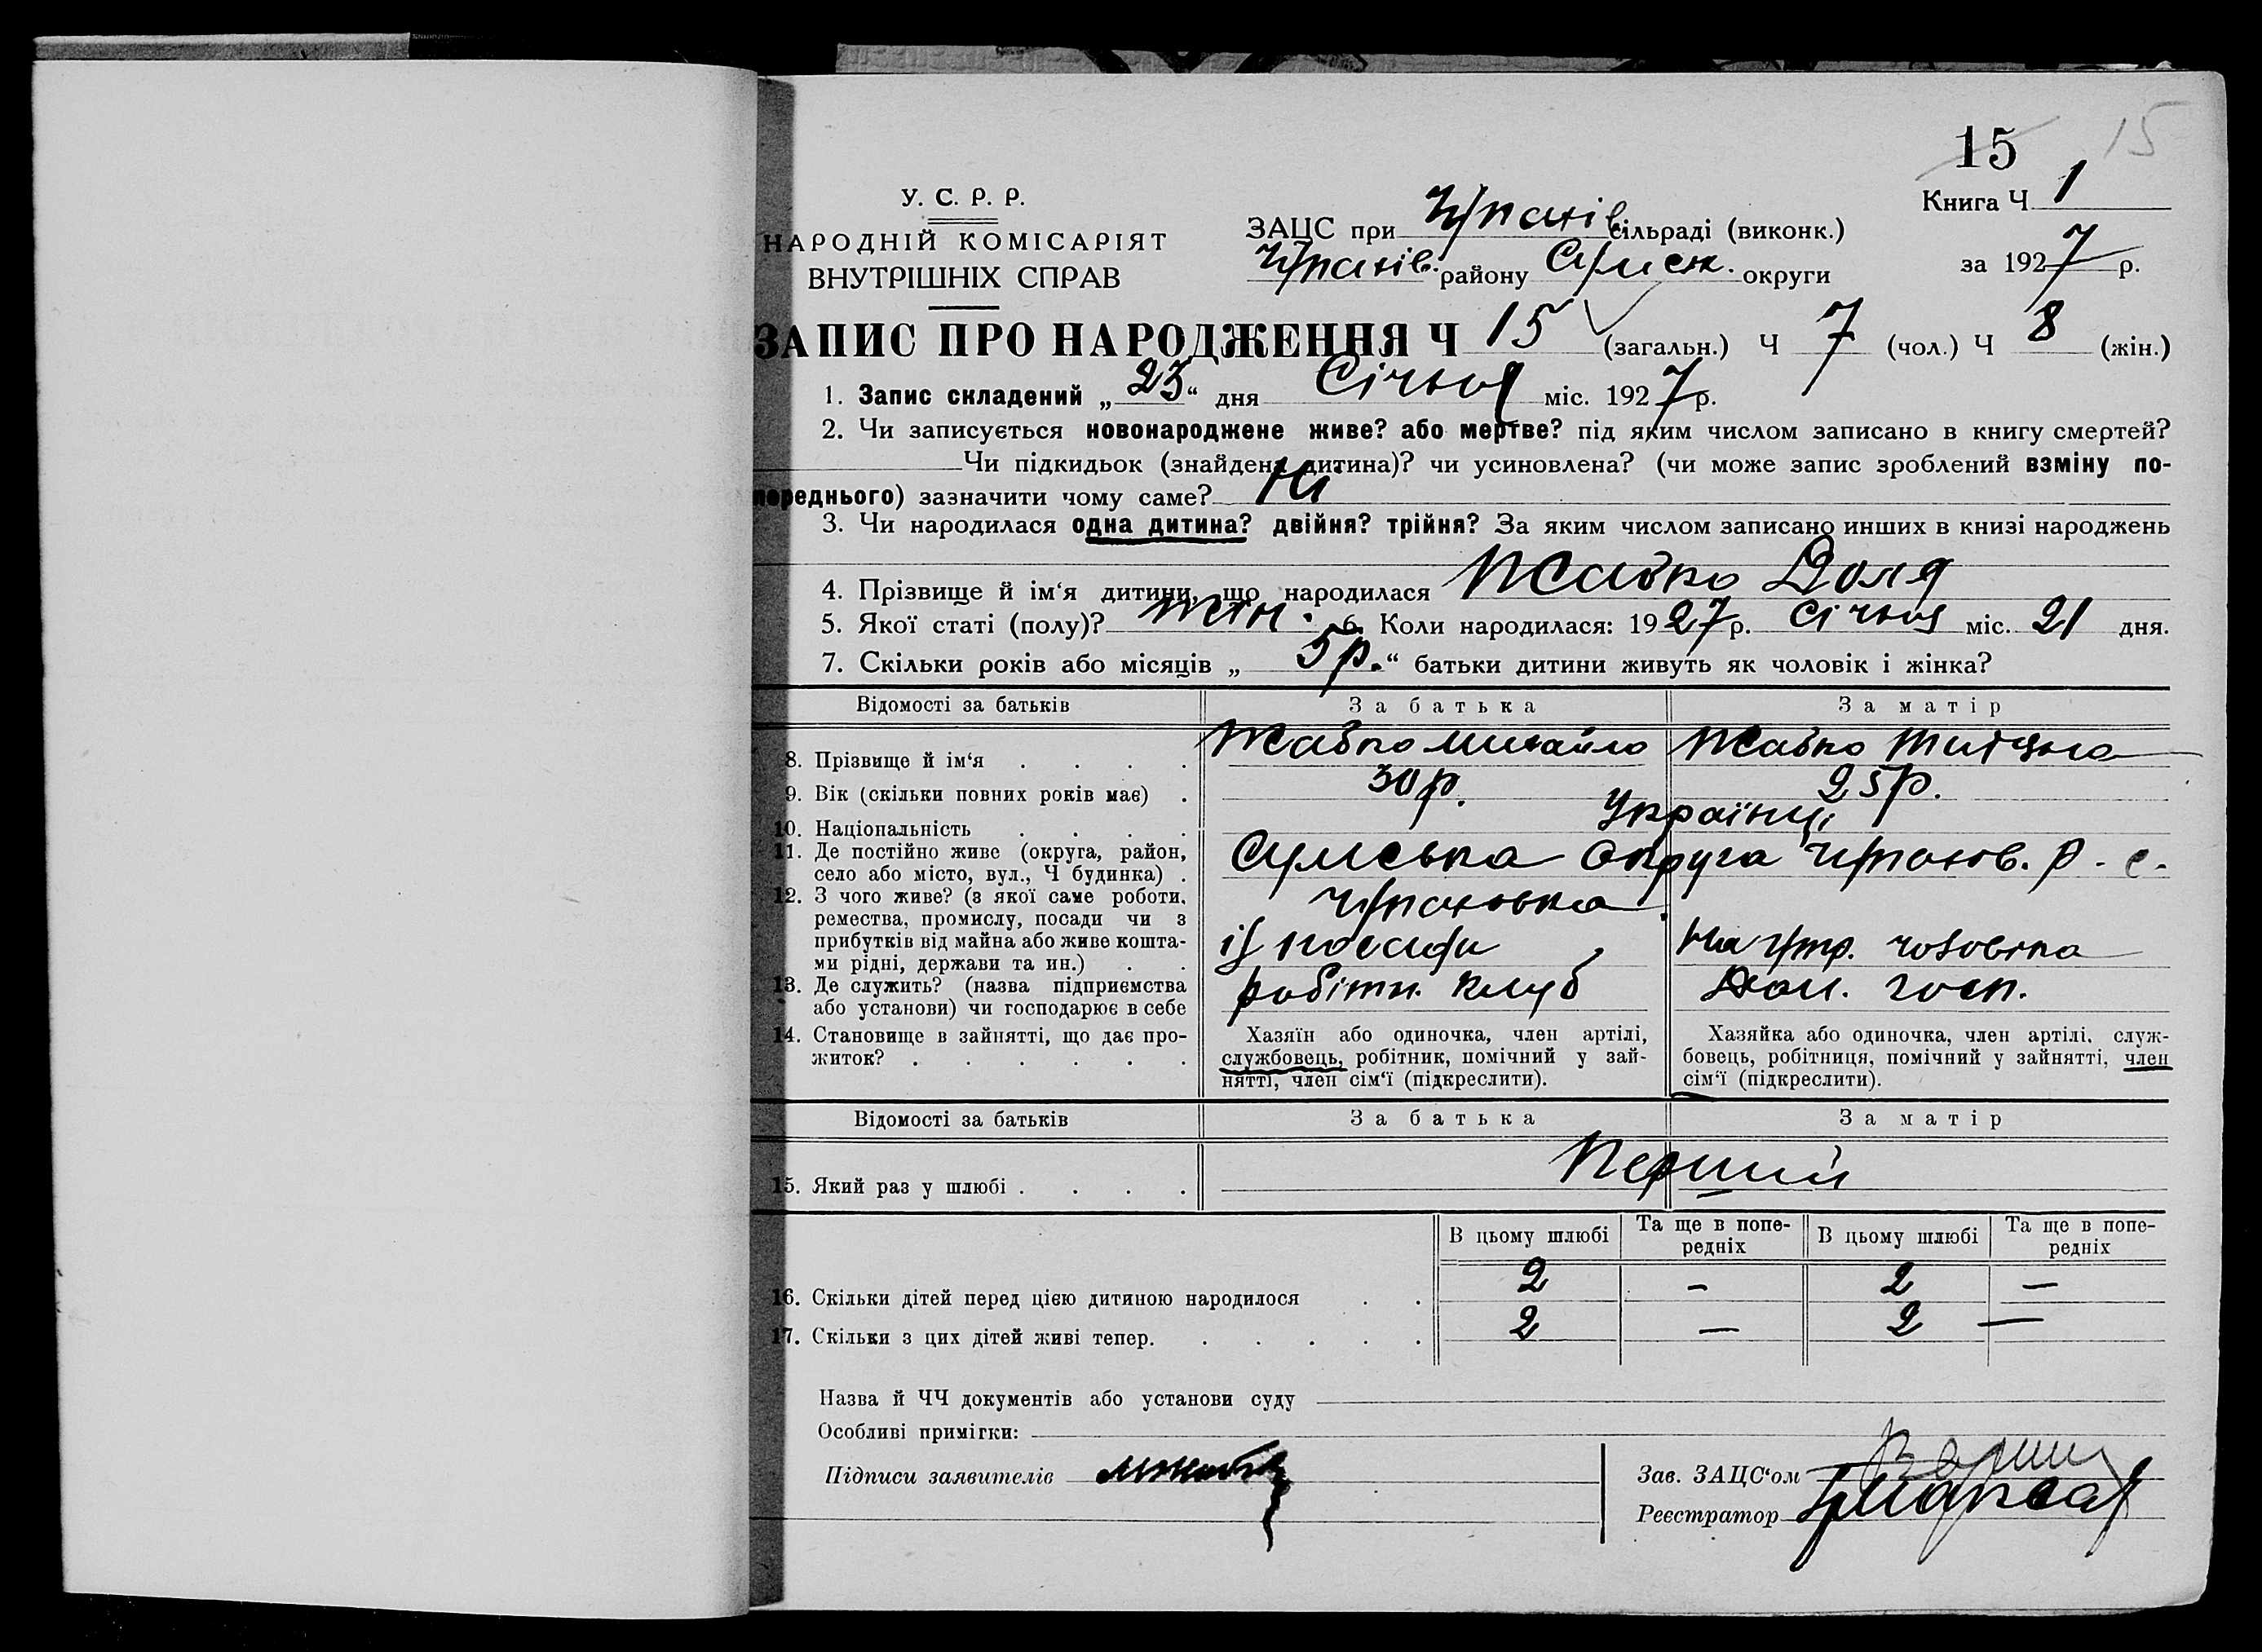 15 15
У. С. Р. Р.
НАРОДНІЙ КОМІСАРІЯТ
ВНУТРІШНІХ СПРАВ
ЗАЦС при сільраді (виконк.)
району Сумск. округи
Книга Ч 1
за 1927 р.
ЗАПИС ПРО НАРОДЖЕННЯ Ч 15 (загальн.) Ч 7 (чол.) Ч 8 (жін.)
1. Запис складений „ 23 “ дня Січня міс. 1927 р.
2. Чи записується новонароджене живе? або мертве? під яким числом записано в книгу смертей?
Чи підкидьок (знайдена дитина)? чи усиновлена? (чи може запис зроблений взміну по-
переднього) зазначити чому саме? Ні
3. Чи народилася одна дитина? двійня? трійня? За яким числом записано инших в книзі народжень
4. Прізвище й ім‘я дитини, що народилася Жабко Доля
5. Якої статі (полу)? жін. 6. Коли народилася: 1927 р. січня міс. 21 дня.
7. Скільки років або місяців „ 5 р. “ батьки дитини живуть як чоловік і жінка?
Відомості за батьків За батька За матір
8. Прізвище й ім‘я . . . . Жабко Михайло Жабко Титяна
9. Вік (скільки повних років має) . 30 р. 25 р.
10. Національність . . . . Українці
11. Де постійно живе (округа, район, село або місто, вул., Ч будинка) . Сумська округа р. с.
12. З чого живе? (з якої саме роботи, ремества, промислу, посади чи з прибутків від майна або живе кошта-ми рідні, держави та ин.) . . із посади На утр. чоловіка
13. Де служить? (назва підприємства або установи) чи господарює в себе робітн. клуб Дом. госп.
14. Становище в зайнятті, що дає про-житок? . . . . . .
Хазяїн або одиночка, член артілі, службовець, робітник, помічний у зай-нятті, член сім‘ї (підкреслити).
Хазяйка або одиночка, член артілі, служ-бовець, робітниця, помічний у зайнятті, член сім‘ї (підкреслити).
Відомості за батьків За батька За матір
15. Який раз у шлюбі . . . . Перший
В цьому шлюбі Та ще в попе-редніх В цьому шлюбі Та ще в попе-редніх
16. Скільки дітей перед цією дитиною народилося . . 2 — 2 —
17. Скільки з цих дітей живі тепер. . . . . . 2 — 2 —
Назва й ЧЧ документів або установи суду
Особливі примітки:
Підписи заявителів
Зав. ЗАЦС‘ом
Реєстратор